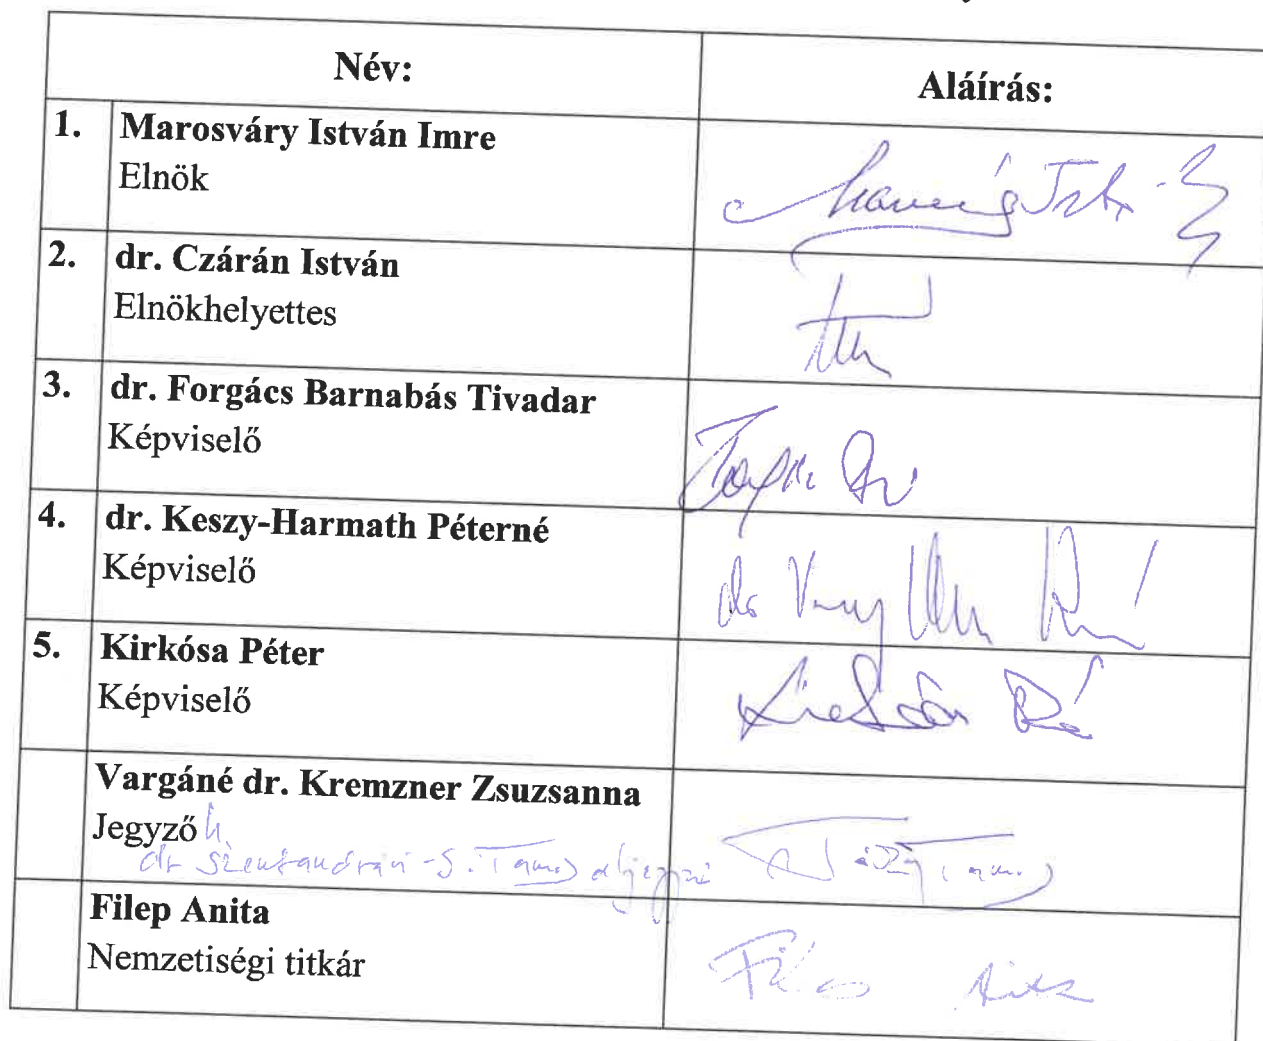 Név:
Aláírás:
1. Marosváry István Imre
Elnök
2. dr. Czárán István
Elnökhelyettes
3. dr. Forgács Barnabás Tivadar
Képviselő
4. dr. Keszy-Harmath Péterné
Képviselő
5. Kirkósa Péter
Képviselő
Vargáné dr. Kremzner Zsuzsanna
Jegyző h.
dr Szentandrási-S. Tamás aljegyző
Filep Anita
Nemzetiségi titkár
Filep Anita